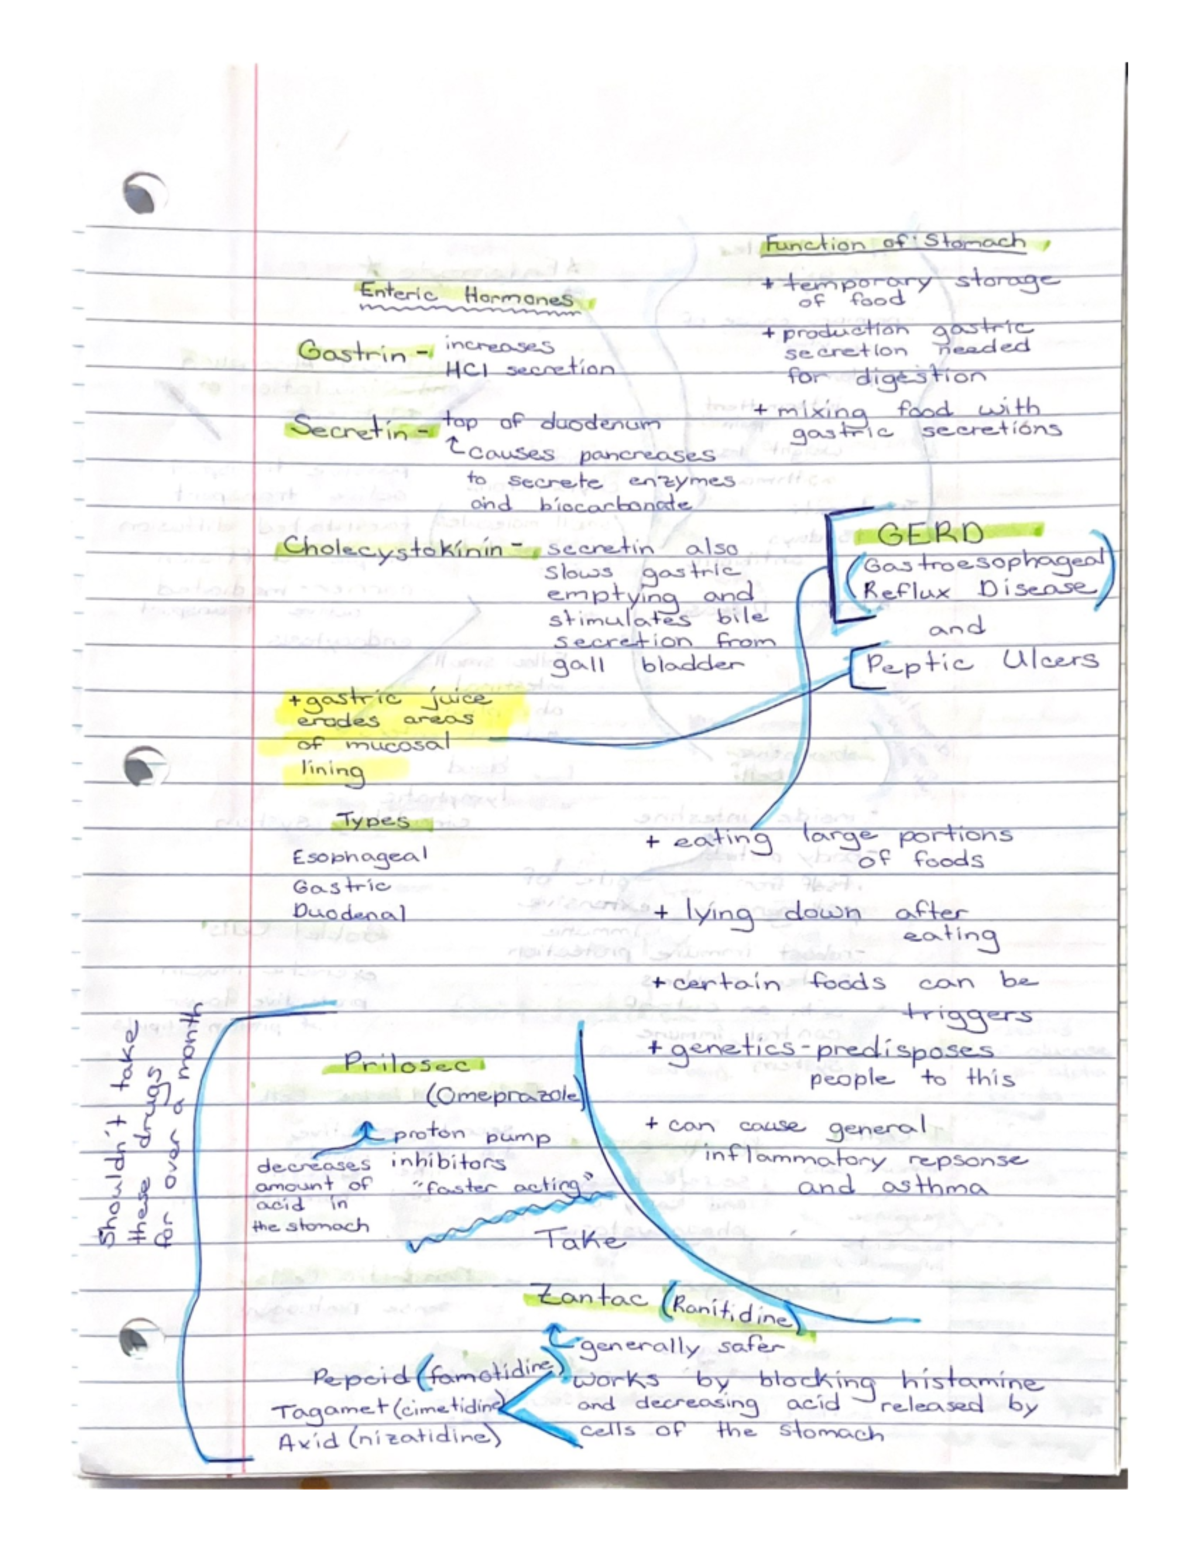 Function of Stomach
+ temporary storage
of food
+ production gastric
secretion needed
for digestion
+ mixing food with
gastric secretions
Enteric Hormones
Gastrin - increases
HCl secretion
Secretin - top of duodenum
causes pancreases
to secrete enzymes
and biocarbonate
Cholecystokinin - secretin also
slows gastric
emptying and
stimulates bile
secretion from
gall bladder
GERD
(Gastroesophageal
Reflux Disease)
and
Peptic Ulcers
+ gastric juice
erodes areas
of mucosal
lining
Types
Esophageal
Gastric
Duodenal
+ eating large portions
of foods
+ lying down after
eating
+ certain foods can be
triggers
+ genetics - predisposes
people to this
+ can cause general
inflammatory repsonse
and asthma
Shouldn't take
these drugs
for over a month
Prilosec
(Omeprazole)
proton pump
inhibitors
"faster acting"
decreases
amount of
acid in
the stomach
Take
Zantac (Ranitidine)
generally safer
works by blocking histamine
and decreasing acid released by
cells of the stomach
Pepcid (famotidine)
Tagamet (cimetidine)
Axid (nizatidine)